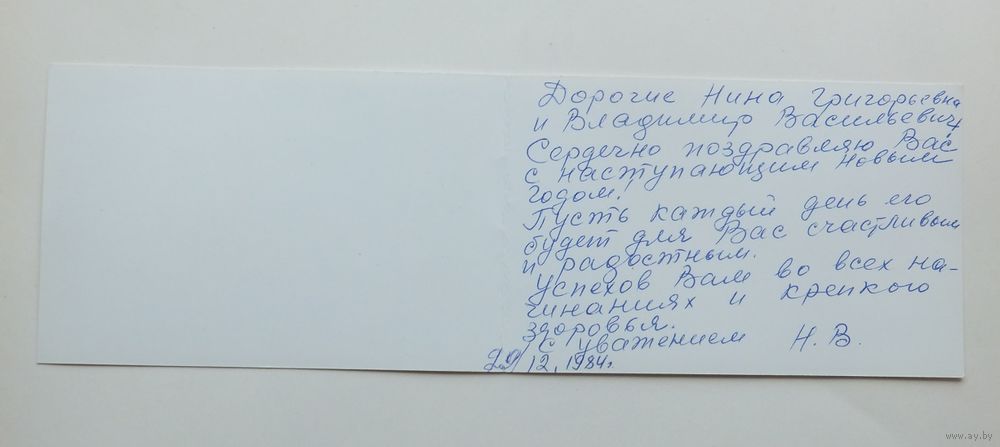 Дорогие Нина Григорьевна
и Владимир Васильевич!
Сердечно поздравляю Вас
с наступающим Новым
годом!
Пусть каждый день его
будет для Вас счастливым
и радостным.
Успехов Вам во всех на-
чинаниях и крепкого
здоровья.
С уважением Н. В.
29/12, 1984г.
www.ay.by